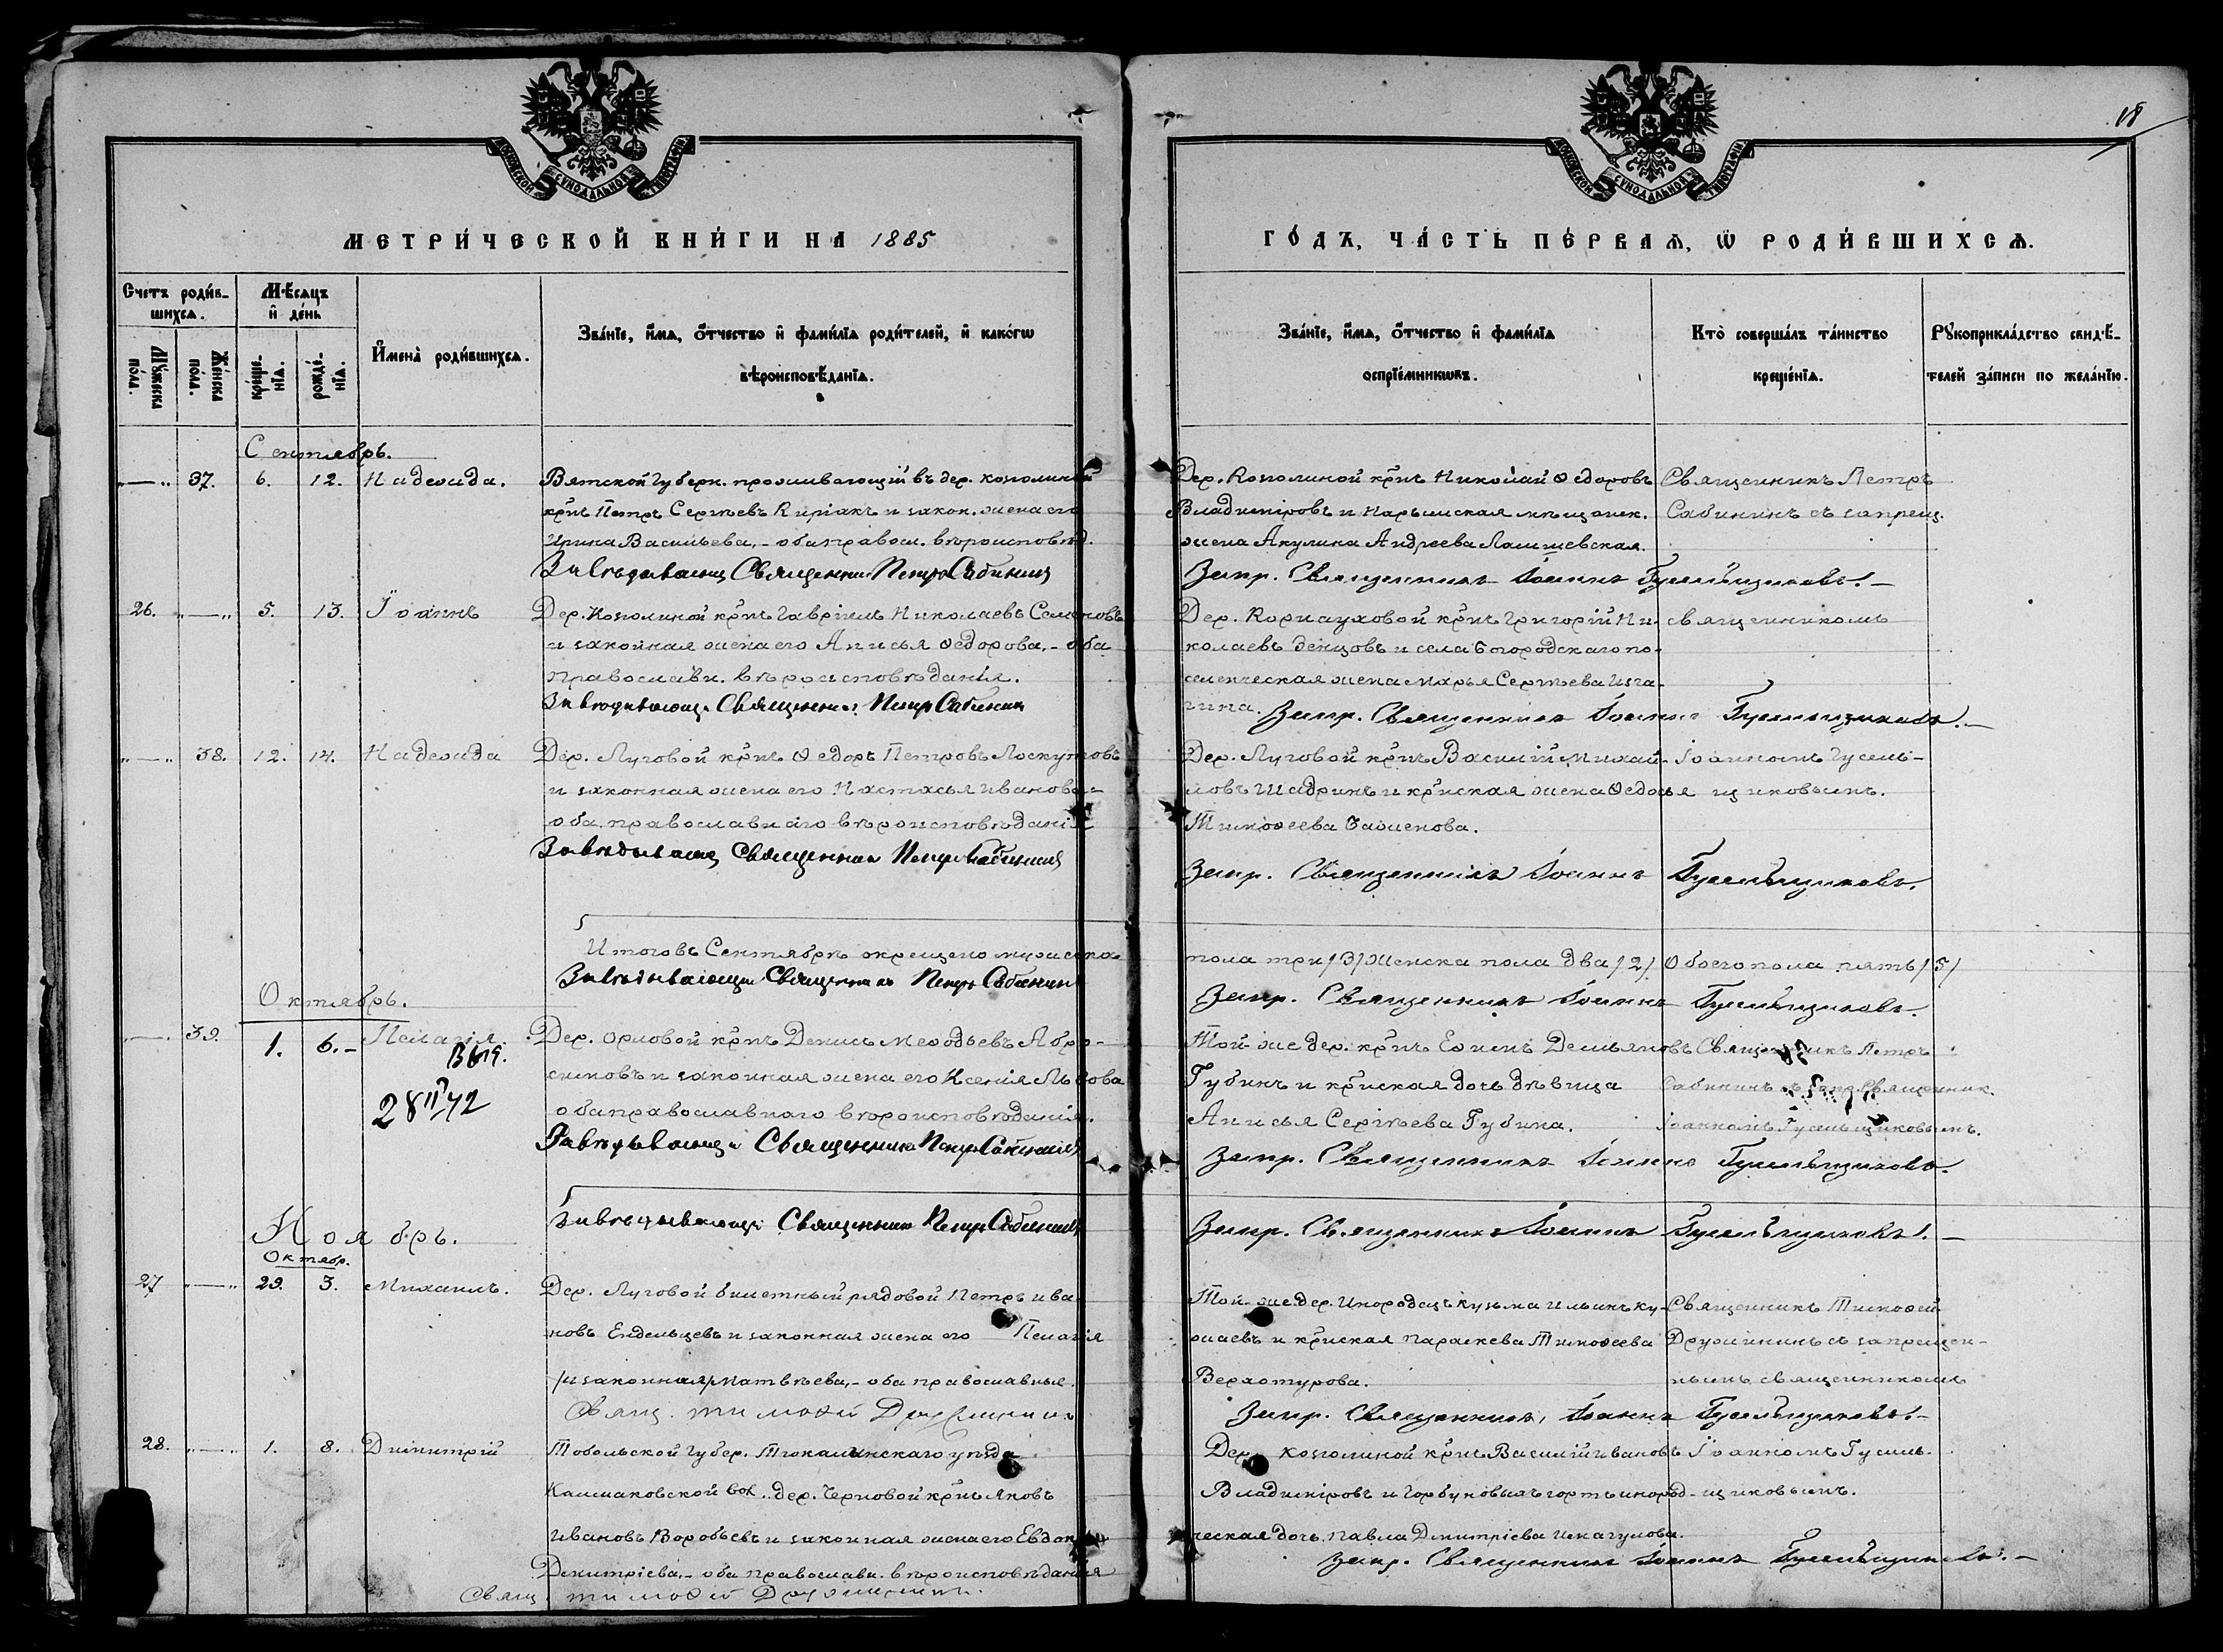 18
МОСКОВСКОЙ СѴНОДАЛЬНОЙ ТИПОГРАФІИ
МОСКОВСКОЙ СѴНОДАЛЬНОЙ ТИПОГРАФІИ
МЕТРИ́ЧЕСКОЙ КНИ́ГИ НА 1885
ГО́ДЪ, ЧА́СТЬ ПЕ́РВАѦ, Ѿ РОДИ́ВШИХСѦ.
Счетъ роди́в-
шихсѧ.
Мꙋ́жеска пола.
Же́нска пола.
Мѣ́сѧцъ
и҆ де́нь
креще́-
нїѧ.
рожде́-
нїѧ.
И҆мена̀ роди́вшихсѧ.
Зва́нїе, и҆́мѧ, ѻ҆́тчество и҆ фами́лїѧ роди́телей, и҆ како́гѡ
вѣроисповѣ́данїѧ.
Зва́нїе, и҆́мѧ, ѻ҆́тчество и҆ фами́лїѧ
воспрїе́мникѡвъ.
Кто̀ соверша́лъ та́инство
креще́нїѧ.
Рꙋкоприкла́дство свидѣ́-
телей за́писи по жела́нїю.
Сентябрь.
"—" 37. 6. 12. Надежда.
Вятской Губерн. проживающій въ дер. Козюлиной
крн̃ъ Петръ Сергѣевъ Киріакъ и закон. жена его
Ирина Васильева, - оба правосл. вѣроисповѣд.
Завѣдывающ. Священник Петръ Сабининъ
Дер. Козюлиной крн̃ъ Николай Ѳедоровъ
Владиміровъ и Нарымская мѣщанск.
жена Акулина Андреева
Запр. Священникъ Іоаннъ Гусельщиковъ. —
Священникъ Петръ
Сабининъ съ запрещ.
26. "—" 5. 13. Іоаннъ
Дер. Козюлиной крн̃ъ Гавріилъ Николаевъ Семеновъ
и законная жена его Анисья Ѳедорова, - оба
православн. вѣроисповѣданія.
Завѣдывающ. Священник Петръ Сабининъ
Дер. Корнауховой крн̃ъ Григорій Ни-
колаевъ Денцовъ и села Богородскаго по-
селенческая жена Марья Сергѣева Изга-
гина. Запр. Священникъ Іоаннъ Гусельщиковъ. —
священникомъ
"—" 38. 12. 14. Надежда
Дер. Луговой крн̃ъ Ѳедоръ Петровъ Лоскутовъ
и законная жена его Настасья Иванова -
оба православнаго вѣроисповѣданія
Завѣдывающ Священник Петръ Сабининъ
Дер. Луговой крн̃ъ Василій Михай-
ловъ Шадринъ и крн̃ская жена Ѳедосья
Тимоѳеева
Запр. Священникъ Іоаннъ Гусельщиковъ.
Іоанномъ Гусель-
щиковымъ.
Итого въ Сентябрѣ окрещено мужеска
пола три /3/ Женска пола два /2/ Обоего пола пять /5/
Завѣдывающій Священник Петръ Сабининъ
Запр. Священникъ Іоаннъ Гусельщиковъ.
Октябрь.
"—" 39. 1. 6. - Пелагія.
28 II 42
Дер. Орловой крн̃ъ Денисъ Меѳодьевъ Абро-
симовъ и законная жена его Ксенія Львова
оба православнаго вѣроисповѣданія.
Завѣдывающій Священникъ Петръ Сабининъ
Той же дер. крн̃ъ Евѳимъ Демьяновъ
Губинъ и крн̃ская дочь дѣвица
Анисья Сергѣева Губина.
Запр. Священникъ Іоаннъ Гусельщиковъ.
Священникъ Петръ
Сабининъ съ запр. Священник.
Іоанномъ Гусельщиковымъ.
Ноябрь.
Завѣдывающій Священник Петръ Сабининъ
Запр. Священникъ Іоаннъ Гусельщиковъ. —
Октябр.
27 "—" 29. 3. Михаилъ.
Дер. Луговой билетный рядовой Петръ Ива-
новъ Енделыцевъ и законная жена его Пелагія
/и законная/ Матвѣева, - оба православные.
Свящ. Тимоѳей Дружининъ
Той же дер. Инородецъ Кузьма Ильинъ Ку-
жаевъ и крн̃ская Параскева Тимоѳеева
Верхотурова.
Запр. Священникъ, Іоаннъ Гусельщиковъ. —
Священникъ Тимоѳей
Дружининъ съ запрещен-
нымъ священникомъ
28. "—" 1. 8. Димитрій
Тобольской Губер. Тюкалинскаго уѣзда
Камышевской вол. дер. Черновой крн̃ъ Яковъ
Ивановъ Воробьевъ и законная жена его Евдокія
Димитріева, - оба православн. вѣроисповѣданія
Свящ. Тимоѳей Дружининъ.
Дер. Козюлиной крн̃ъ Василій Ивановъ
Владиміровъ и Горбуновыхъ юртъ инород-
ческая дочь Павла Димитріева
Запр. Священникъ Іоаннъ Гусельщиковъ. —
Іоанномъ Гусель-
щиковымъ.